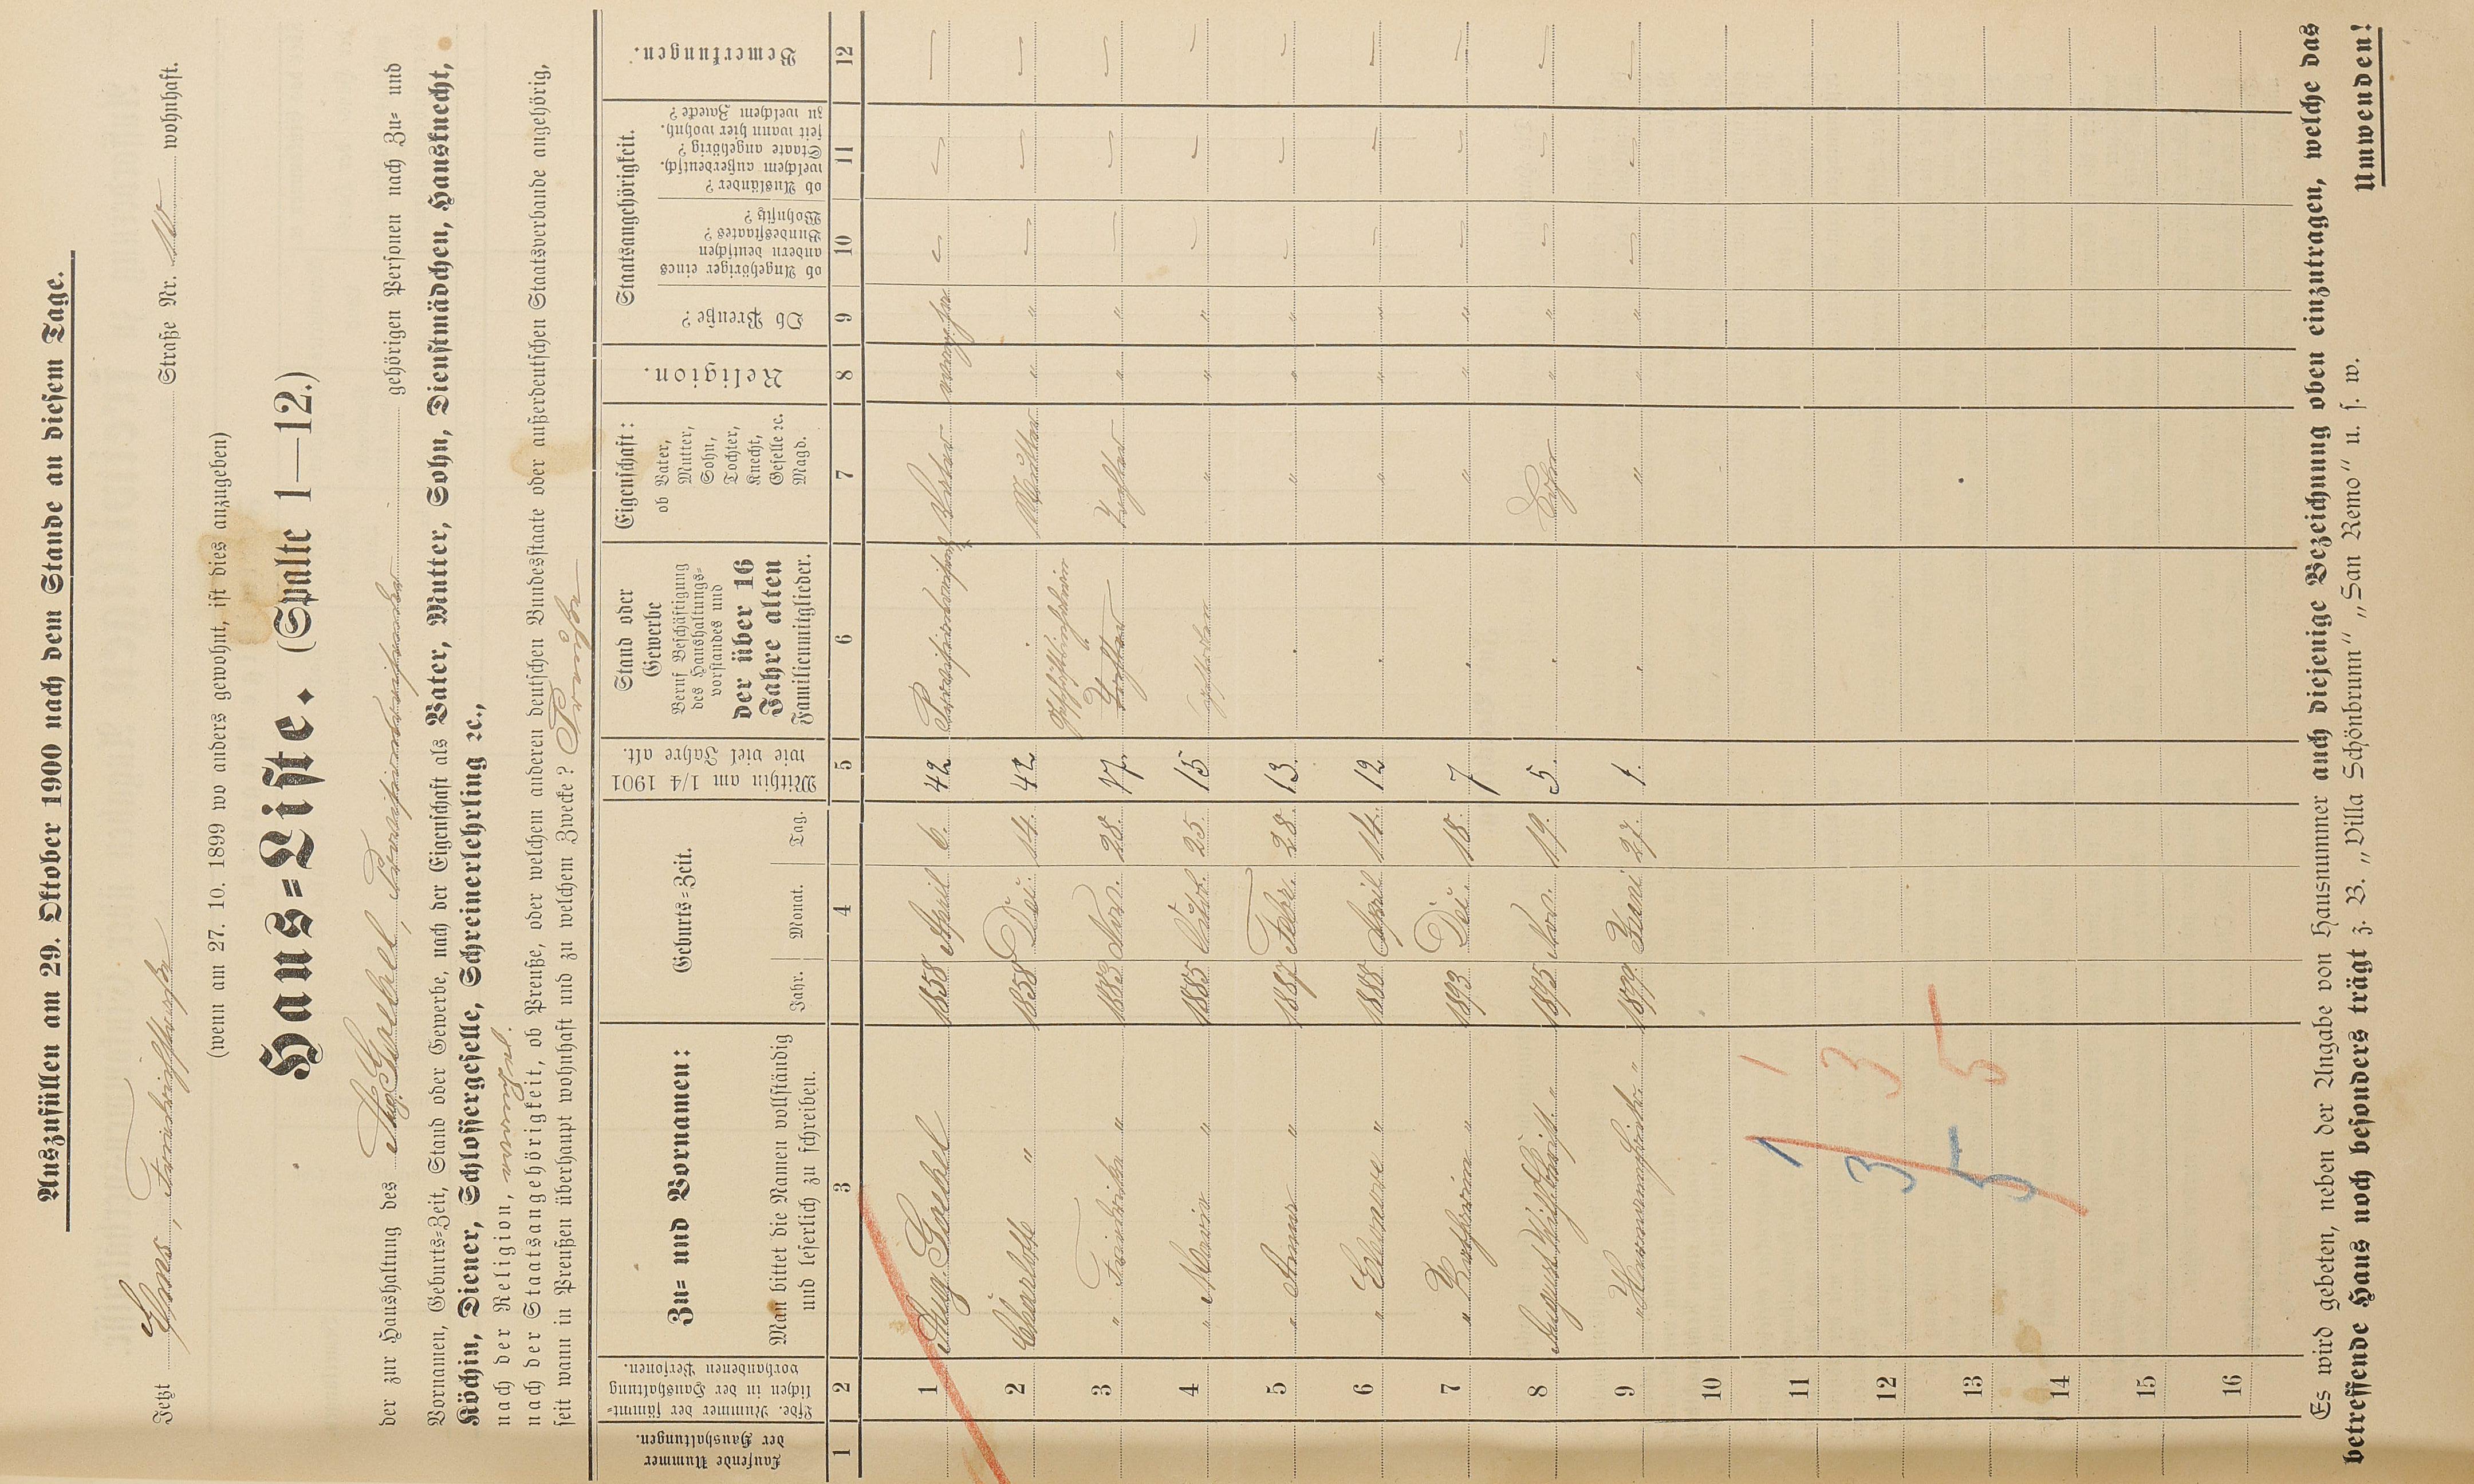 Auszufüllen am 29. Oktober 1900 nach dem Stande an diesem Tage.
Jetzt Ems, Friedrichstraße Straße Nr. 10 wohnhaft.
(wenn am 27. 10. 1899 wo anders gewohnt, ist dies anzugeben)
Haus=Liste. (Spalte 1—12.)
der zur Haushaltung des Aug. Goebel, gehörigen Personen nach Zu= und
Vornamen, Geburts=Zeit, Stand oder Gewerbe, nach der Eigenschaft als Vater, Mutter, Sohn, Dienstmädchen, Hausknecht,
Köchin, Diener, Schlossergeselle, Schreinerlehrling ꝛc.,
nach der Religion,
nach der Staatsangehörigkeit, ob Preuße, oder welchem anderen deutschen Bundesstaate oder außerdeutschen Staatsverbande angehörig,
seit wann in Preußen überhaupt wohnhaft und zu welchem Zwecke?
Laufende Nummer der Haushaltungen.
Lfde. Nummer der sämmt=lichen in der Haushaltung vorhandenen Personen.
Zu= und Vornamen:
Man bittet die Namen vollständig und leserlich zu schreiben.
Geburts=Zeit.
Jahr. Monat. Tag.
Mithin am 1/4 1901 wie viel Jahre alt.
Stand oder Gewerbe
Beruf Beschäftigung des Haushaltungs=vorstandes und
der über 16 Jahre alten
Familienmitglieder.
Eigenschaft:
ob Vater, Mutter, Sohn, Tochter, Knecht, Geselle ꝛc. Magd.
Religion.
Staatsangehörigkeit.
Ob Preuße?
ob Angehöriger eines andern deutschen Bundesstaates? Wohnsitz?
ob Ausländer? welchem außerdeutsch. Staate angehörig? seit wann hier wohnh. zu welchem Zwecke?
Bemerkungen.
1 2 3 4 5 6 7 8 9 10 11 12
1 Aug. Goebel 1858 April 6. 42 Vater — — —
2 Charlotte " 1858 Dez. 14. 42 Mutter " " — — —
3 " Friederike " 1883 Nov. 28. 17. Tochter " " — — —
4 " Marie " 1885 25. 15 " " " — — —
5 " Anna " 1887 Febr. 28. 13. . " " " — —
6 " Eleonore " 1888 April 14. 12. . " " " — — —
7 " Katharine " 1893 Dez. 18. 7 . " " " — — —
8 August 1895 Nov. 19. 5. . Sohn " " — — —
9 " Hermann " 1899 Juni 27. 1. . " " " — — —
10
11
12
13
14
15
16
1 1
3 3
5 5
Es wird gebeten, neben der Angabe von Hausnummer auch diejenige Bezeichnung oben einzutragen, welche das
betreffende Haus noch besonders trägt z. B. „Villa Schönbrunn" „San Remo" u. s. w.
Umwenden!